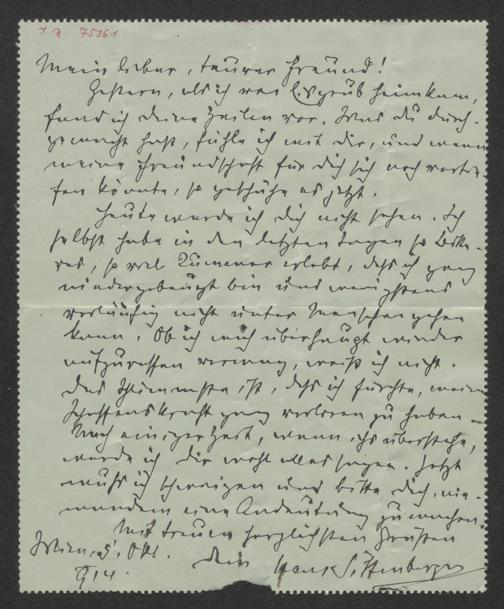 I. N. 75361
Mein lieber, teurer Freund!
Gestern, als ich von Eisgrub heimkam,
fand ich deine Zeilen vor. Was du durch-
gemacht hast, fühle ich mit dir, und wenn
meine Freundschaft für dich sich noch vertie-
fen könnte, so geschähe es jetzt.
Heute werde ich dich nicht sehen. Ich
selbst habe in den letzten Tagen so bitte-
res, so viel Kummer erlebt, dass ich ganz
niedergebeugt bin und wenigstens
vorläufig nicht unter Menschen gehen
kann. Ob ich mich überhaupt wieder
aufzuraffen vermag, weiß ich nicht.
Das Schlimmste ist, dass ich fürchte, meine
Schaffenskraft ganz verloren zu haben –
Nach einiger Zeit, wenn ichs überstehe,
werde ich dir wohl alles sagen. Jetzt
muß ich schweigen und bitte dich, nie-
mandem eine Andeutung zu machen.
Mit treuen herzlichsten Grüßen
Wien, 5. Okt. dein Hans Sittenberger
914.